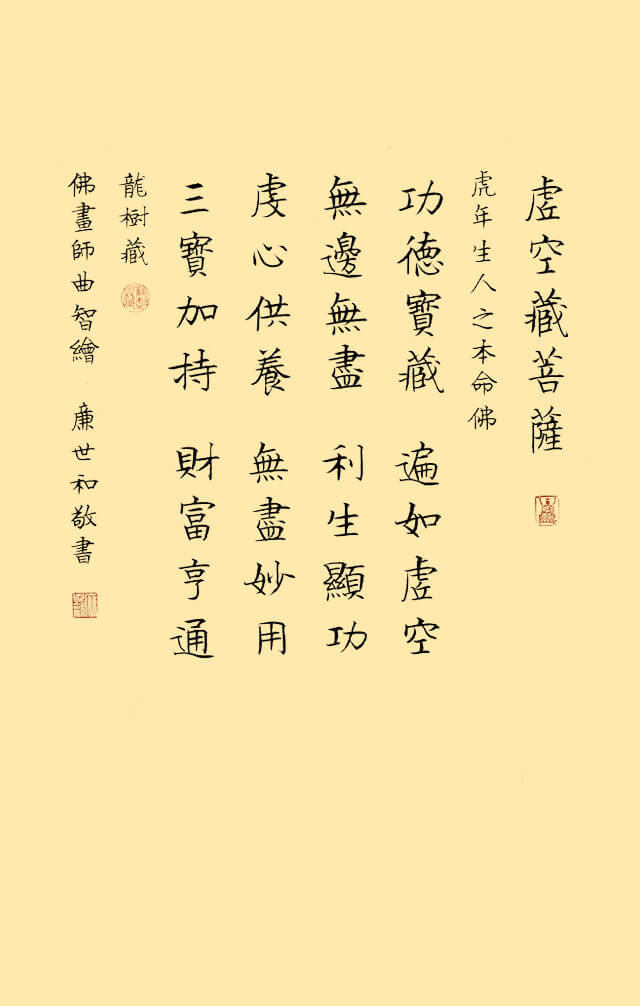 虛空藏菩薩
虎年生人之本命佛
功德寶藏 遍如虛空
無邊無盡 利生顯功
虔心供養 無盡妙用
三寶加持 財富亨通
龍樹藏
佛畫師曲智繪 廉世和敬書